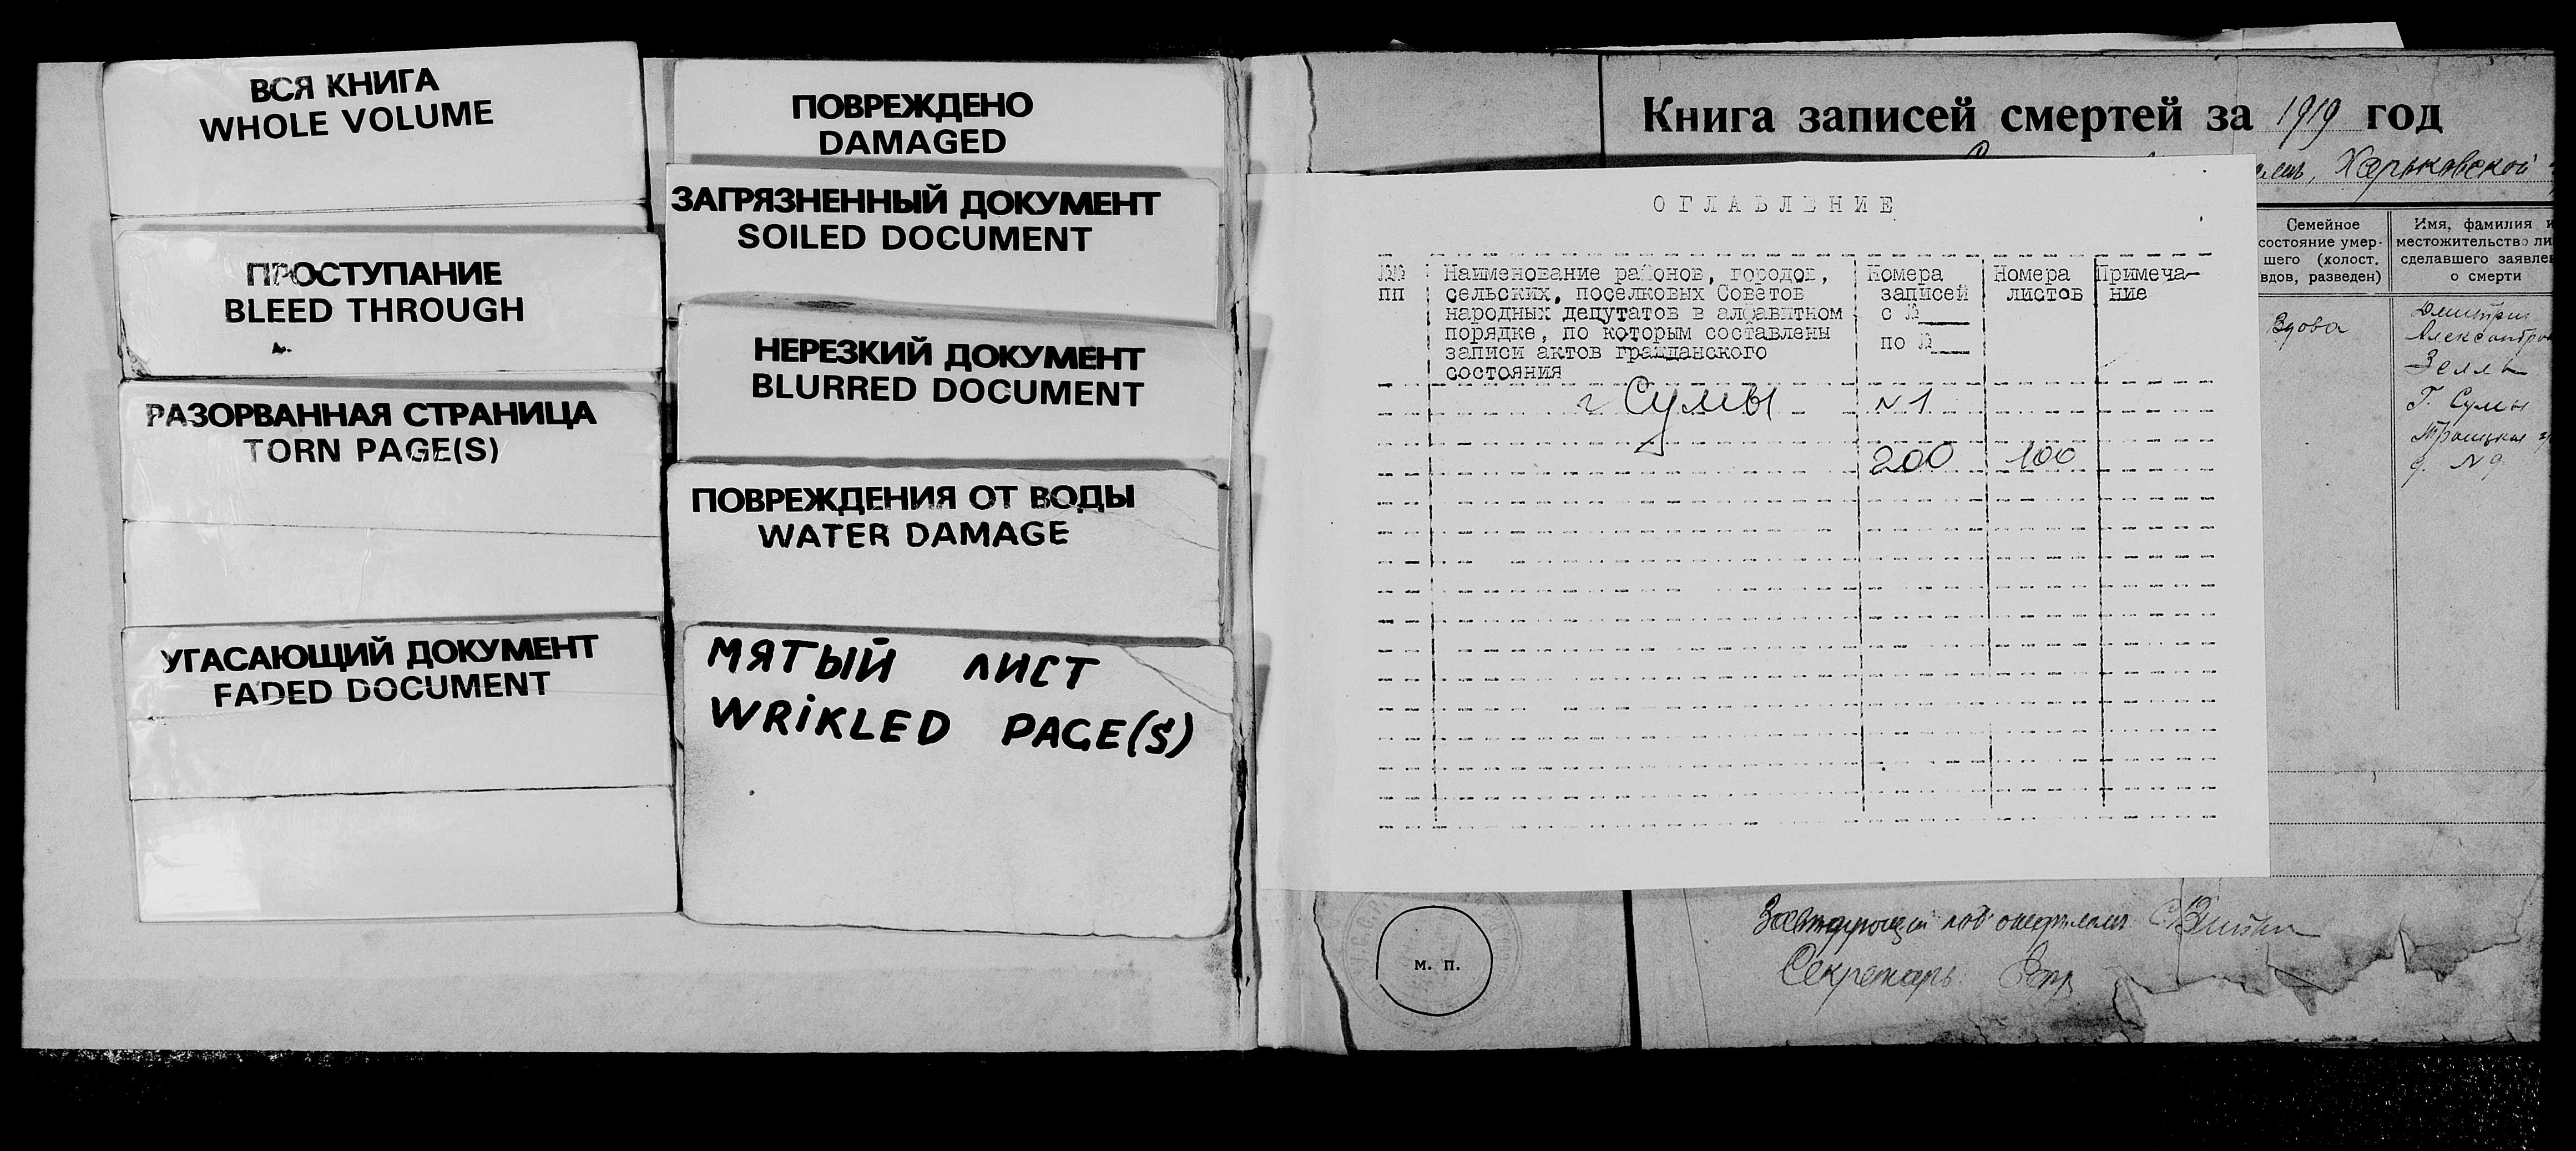 ВСЯ КНИГА
WHOLE VOLUME
ПРОСТУПАНИЕ
BLEED THROUGH
РАЗОРВАННАЯ СТРАНИЦА
TORN PAGE(S)
УГАСАЮЩИЙ ДОКУМЕНТ
FADED DOCUMENT
ПОВРЕЖДЕНО
DAMAGED
ЗАГРЯЗНЕННЫЙ ДОКУМЕНТ
SOILED DOCUMENT
НЕРЕЗКИЙ ДОКУМЕНТ
BLURRED DOCUMENT
ПОВРЕЖДЕНИЯ ОТ ВОДЫ
WATER DAMAGE
МЯТЫЙ ЛИСТ
WRiKLED PAGE(S)
Книга записей смертей за 1919 год
Харьковской
ОГЛАВЛЕНИЕ
№№ пп
Наименование районов, городов,
сельских, поселковых Советов
народных депутатов в алфавитном
порядке, по которым составлены
записи актов гражданского
состояния
Номера
записей
с №___
по №___
Номера
листов
Примеча-
ние
г Сумы N 1
200 100
Семейное
состояние умер-
шего (холост.
вдов, разведен)
Имя, фамилия и
местожительство ли
сделавшего заявлен
о смерти
Вдова
Дмитрий
Александров
Зелль
Г. Сумы
Троицкая
д. N 9
м. п.
Заведующий под'отделом
Секретарь